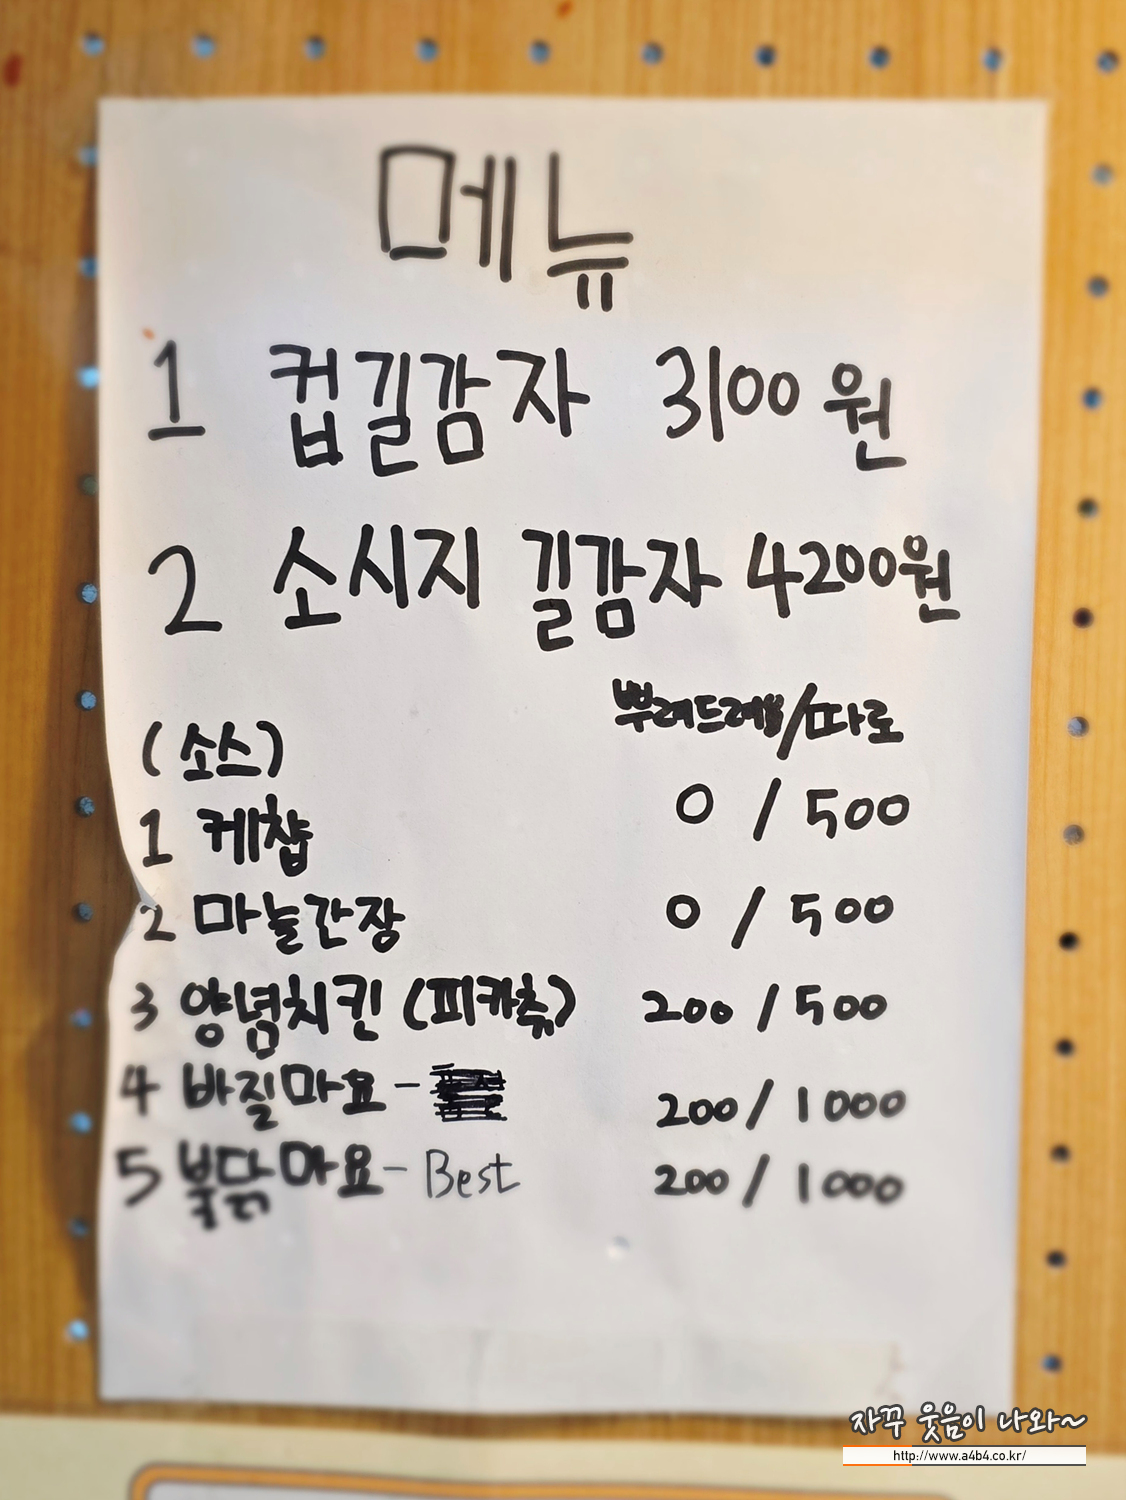 메뉴
1 컵길감자 3100원
2 소시지 길감자 4200원
뿌려드레용/따로
(소스)
1 케챱 0 / 500
2 마늘간장 0 / 500
3 양념치킨 (피카츄) 200 / 500
4 바질마요 - 200 / 1000
5 불닭마요 - Best 200 / 1000
자꾸 웃음이 나와~
http://www.a4b4.co.kr/